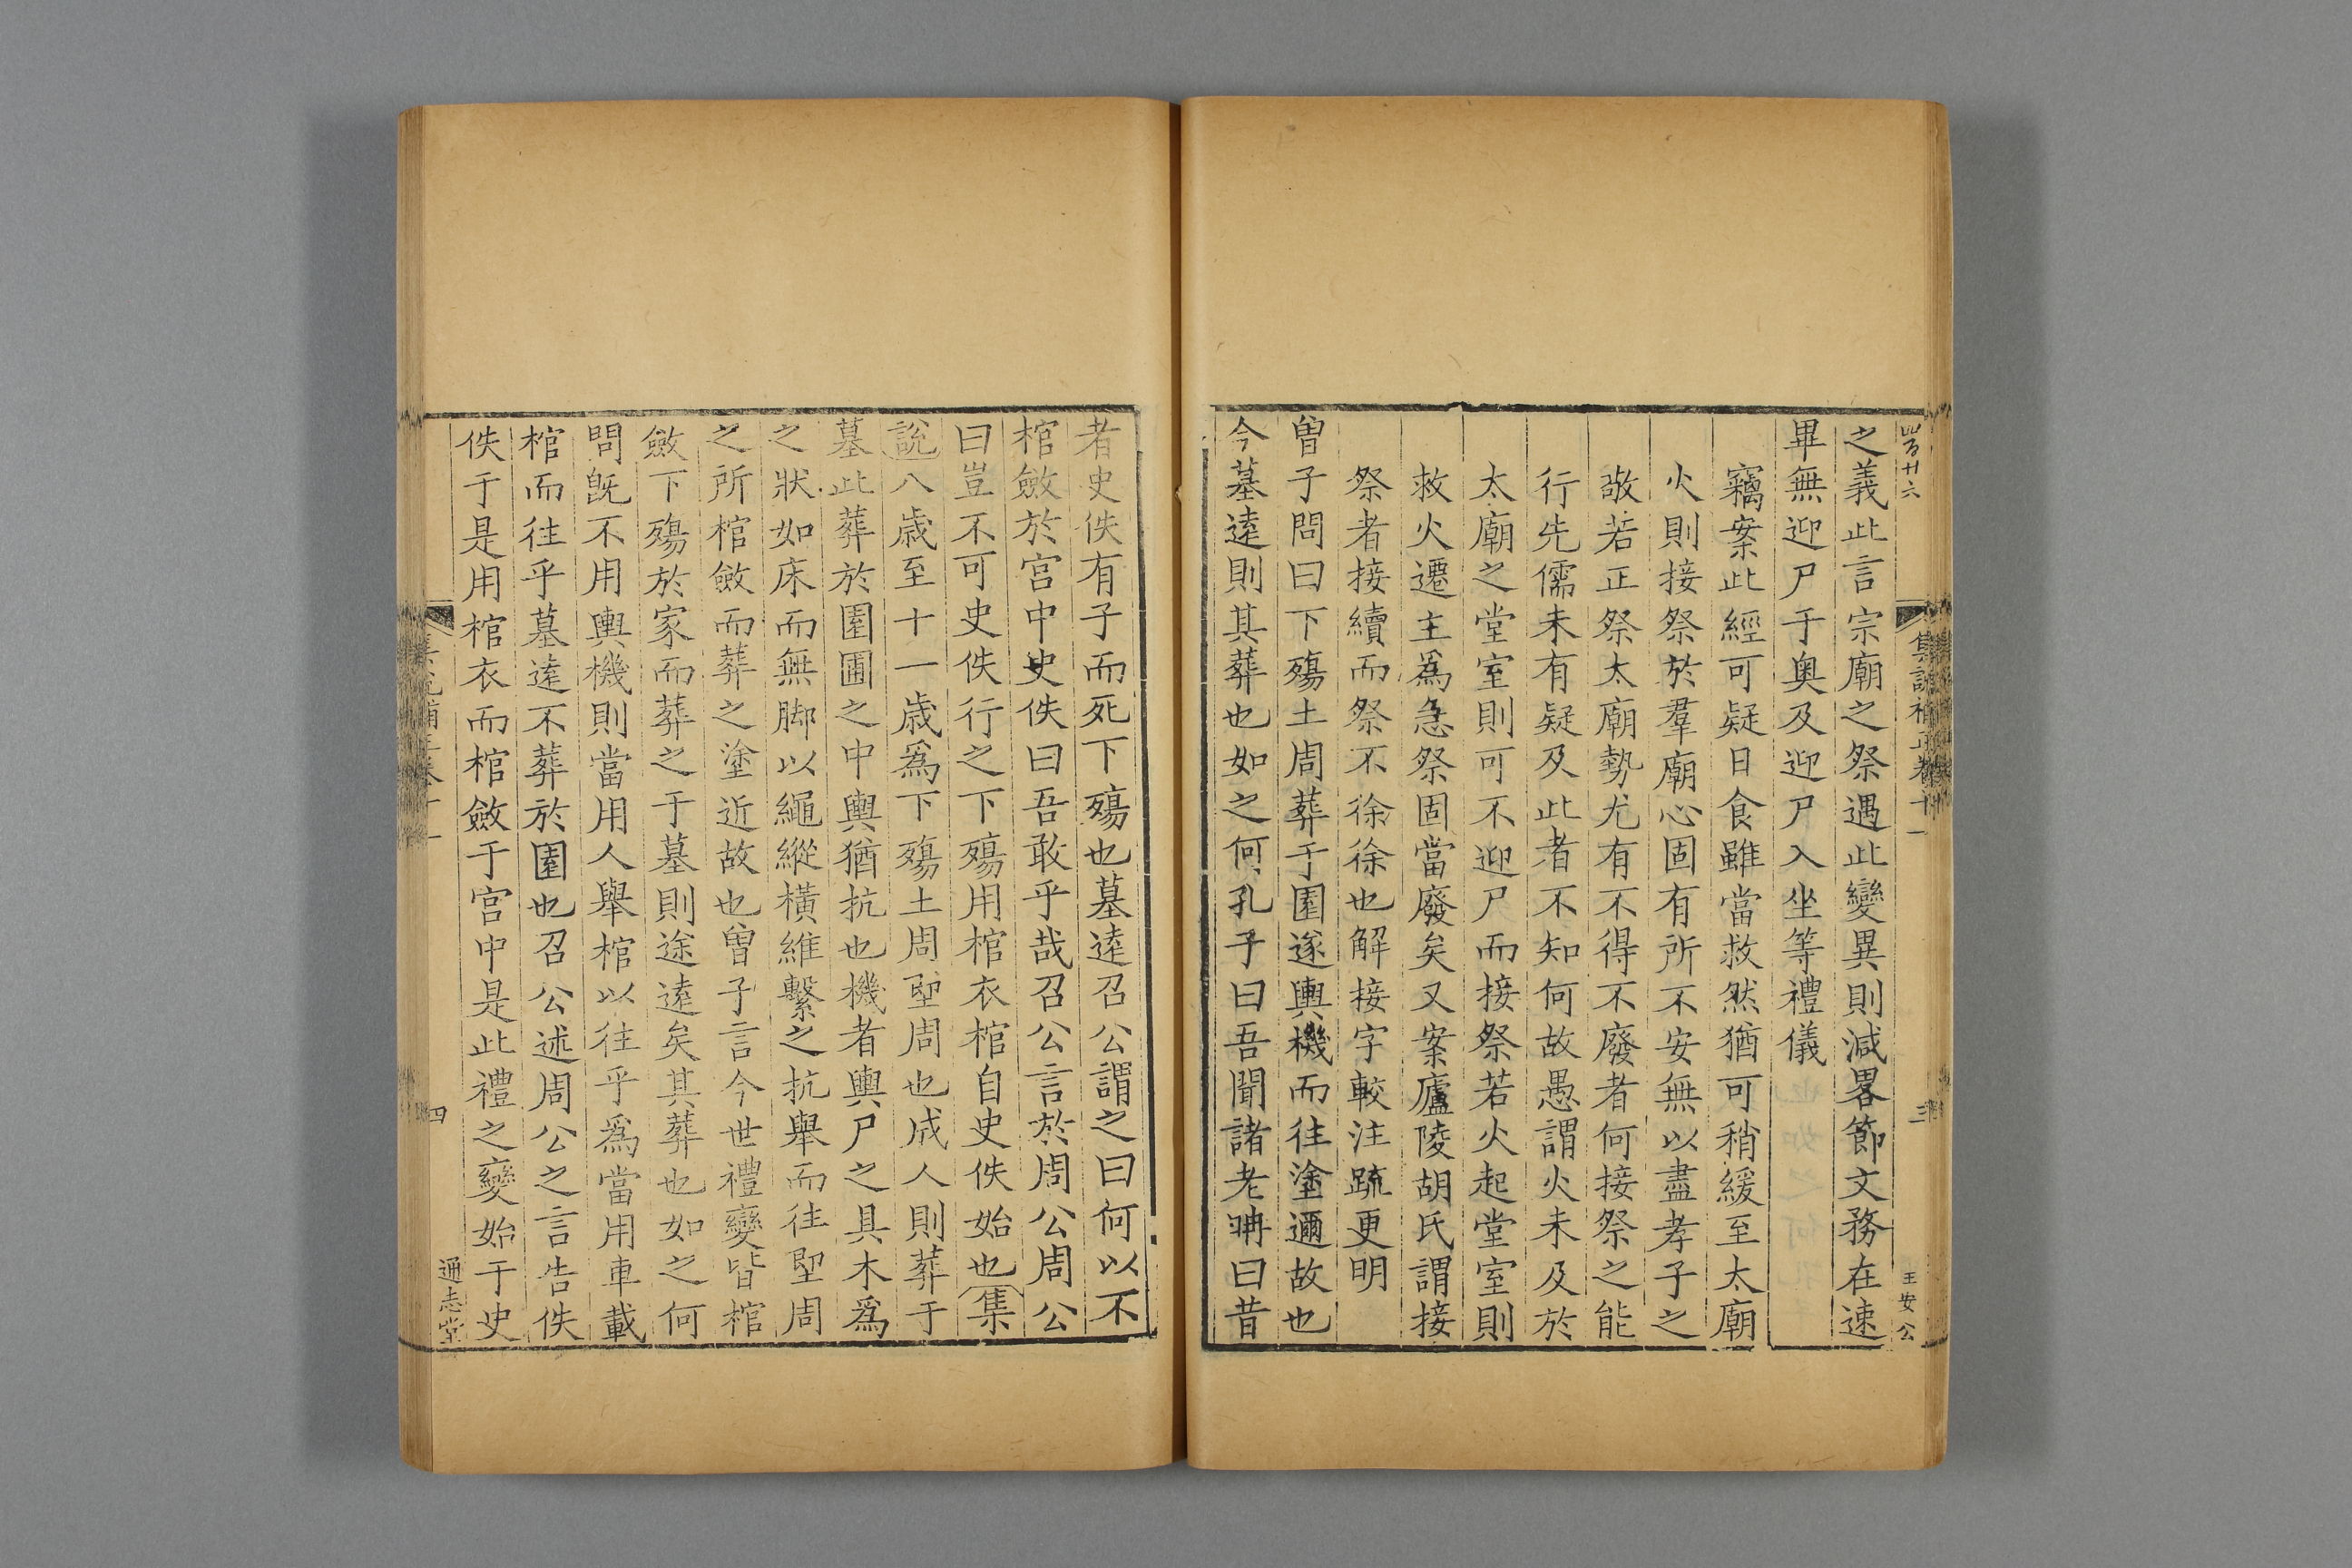 之義此言宗廟之祭遇此變異則減畧節文務在速
畢無迎尸于奥及迎尸入坐等禮儀
竊案此經可疑日食雖當救然猶可稍緩至太廟
火則接祭於羣廟心固有所不安無以盡孝子之
敬若正祭太廟勢尤有不得不廢者何接祭之能
行先儒未有疑及此者不知何故愚謂火未及於
太廟之堂室則可不迎尸而接祭若火起堂室則
救火遷主爲急祭固當廢矣又案廬陵胡氏謂接
祭者接續而祭不徐徐也解接字較注疏更明
曾子問曰下殤土周葬于園遂輿機而往塗邇故也
今墓逺則其葬也如之何孔子曰吾聞諸老耼曰昔
者史佚有子而死下殤也墓逺召公謂之曰何以不
棺斂於宮中史佚曰吾敢乎哉召公言於周公周公
曰豈不可史佚行之下殤用棺衣棺自史佚始也集
說八歳至十一歳爲下殤土周堲周也成人則葬于
墓此葬於園圃之中輿猶抗也機者輿尸之具木爲
之狀如床而無脚以繩縱橫維繫之抗舉而往堲周
之所棺斂而葬之塗近故也曾子言今世禮變皆棺
斂下殤於家而葬之于墓則途逺矣其葬也如之何
問旣不用輿機則當用人舉棺以往乎爲當用車載
棺而往乎墓逺不葬於園也召公述周公之言告佚
佚于是用棺衣而棺斂于宮中是此禮之變始于史
集說補正卷十一
三
王安公
四
通志堂